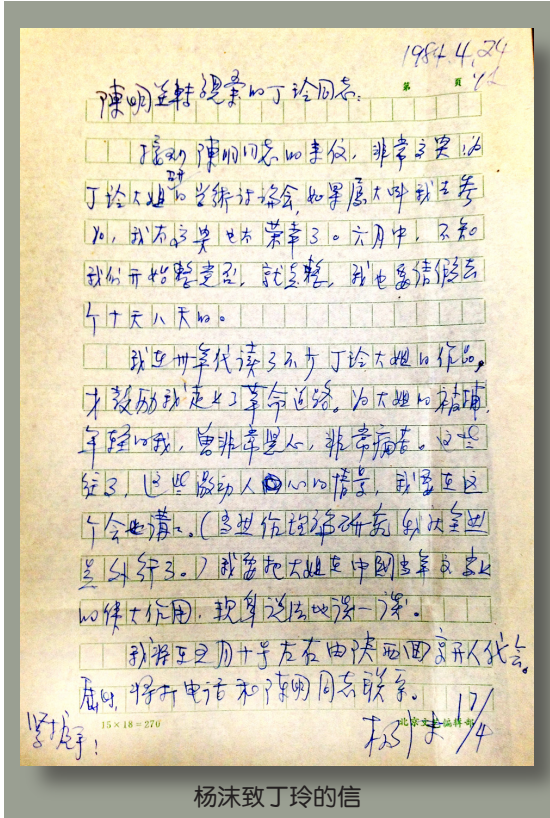 1984.4.24
第 頁
陳明并轉親愛的丁玲同志：
接到陳明同志的来信，非常高興，为
丁玲大姐的学術讨論会，如果庐大叫我去参
加，我太高興也太荣幸了。六月中，不知
我们开始整党否，就是整，我也要请假去
个十天八天的。
我在卅年代读了不少丁玲大姐的作品，
才鼓励我走上了革命道路。为大姐的被捕，
年轻的我，曾非常忧心，非常痛苦。这些
往事，这些激动人心的情景，我要在这
个会上講講。（当然作理論研究我状全
是外行了。）我要把大姐在中國当年文学上
的偉大作用，现身说法地谈一谈。
我将在五月十号左右由陕西回京开人代会。
届时，将打电话和陳明同志联系。
紧握手！
杨沫
17/4
15×18=270
北京文艺編輯部
杨沫致丁玲的信